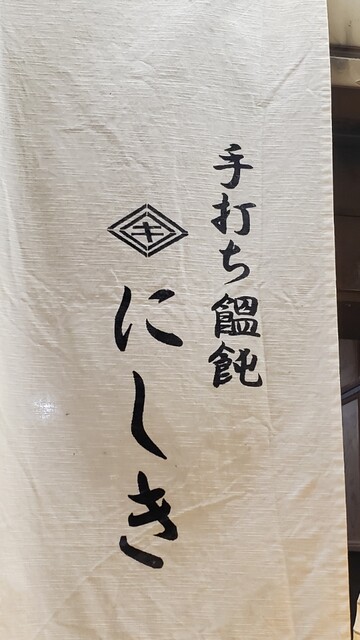 手打ち饂飩
キ
にしき